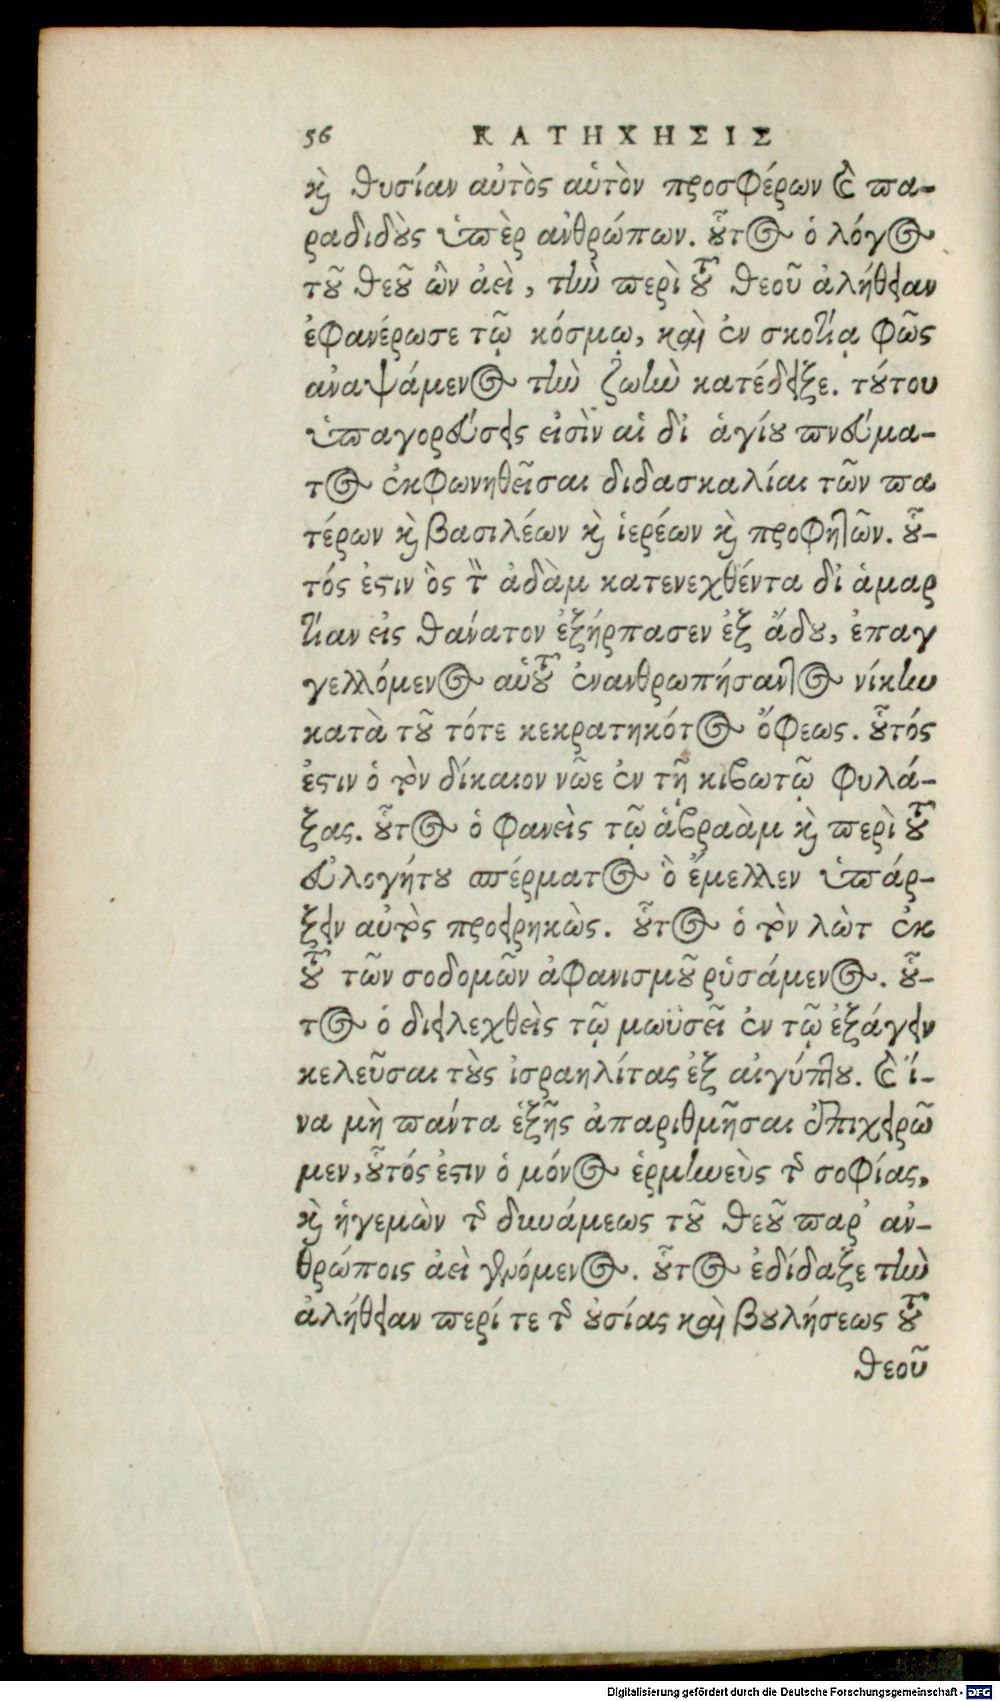 56 ΚΑΤΗΧΗΣΙΣ
κὶ θυσίαν αὐτὸς αὑτὸν προσφέρων καὶ πα-
ραδιδοὺς ὑπὲρ ἀνθρώπων. οὗτος ὁ λόγος
τοῦ θεοῦ ὢν ἀεὶ, τὴν περὶ τοῦ θεοῦ ἀλήθειαν
ἐφανέρωσε τῷ κόσμῳ, καὶ ἐν σκοτίᾳ φῶς
ἀναψάμενος τὴν ζωὴν κατέδειξε. τούτου
ὑπαγορεύσεις εἰσὶν αἱ δι' ἁγίου πνεύμα-
τος ἐκφωνηθεῖσαι διδασκαλίαι τῶν πα
τέρων καὶ βασιλέων καὶ ἱερέων καὶ προφητῶν. οὗ-
τός ἐστιν ὃς τὸν ἀδὰμ κατενεχθέντα δι' ἁμαρ
τίαν εἰς θάνατον ἐξήρπασεν ἐξ ᾅδου, ἐπαγ
γελλόμενος αὑτοῦ ἐνανθρωπήσαντος νίκην
κατὰ τοῦ τότε κεκρατηκότος ὄφεως. οὗτός
ἐστιν ὁ τὸν δίκαιον νῶε ἐν τῇ κιβωτῷ φυλά-
ξας. οὗτος ὁ φανεὶς τῷ ἀβραὰμ καὶ περὶ τοῦ
εὐλογήτου σπέρματος ὃ ἔμελλεν ὑπάρ-
ξειν αὐτοῖς προειρηκὼς. οὗτος ὁ τὸν λὼτ ἐκ
τοῦ τῶν σοδομῶν ἀφανισμοῦ ῥυσάμενος. οὗ-
τος ὁ διειλεχθεὶς τῷ μωϋσεῖ ἐν τῷ ἐξάγειν
κελεῦσαι τοὺς ἰσραηλίτας ἐξ αἰγύπτου. καὶ ἵ-
να μὴ πάντα ἑξῆς ἀπαριθμῆσαι ἐπιχειρῶ
μεν, οὗτός ἐστιν ὁ μόνος ἑρμηνεὺς τῆς σοφίας,
καὶ ἡγεμὼν τῆς δυνάμεως τοῦ θεοῦ παρ' ἀν-
θρώποις ἀεὶ γενόμενος. οὗτος ἐδίδαξε τὴν
ἀλήθειαν περί τε τῆς οὐσίας καὶ βουλήσεως τοῦ
θεοῦ
Digitalisierung gefördert durch die Deutsche Forschungsgemeinschaft - DFG